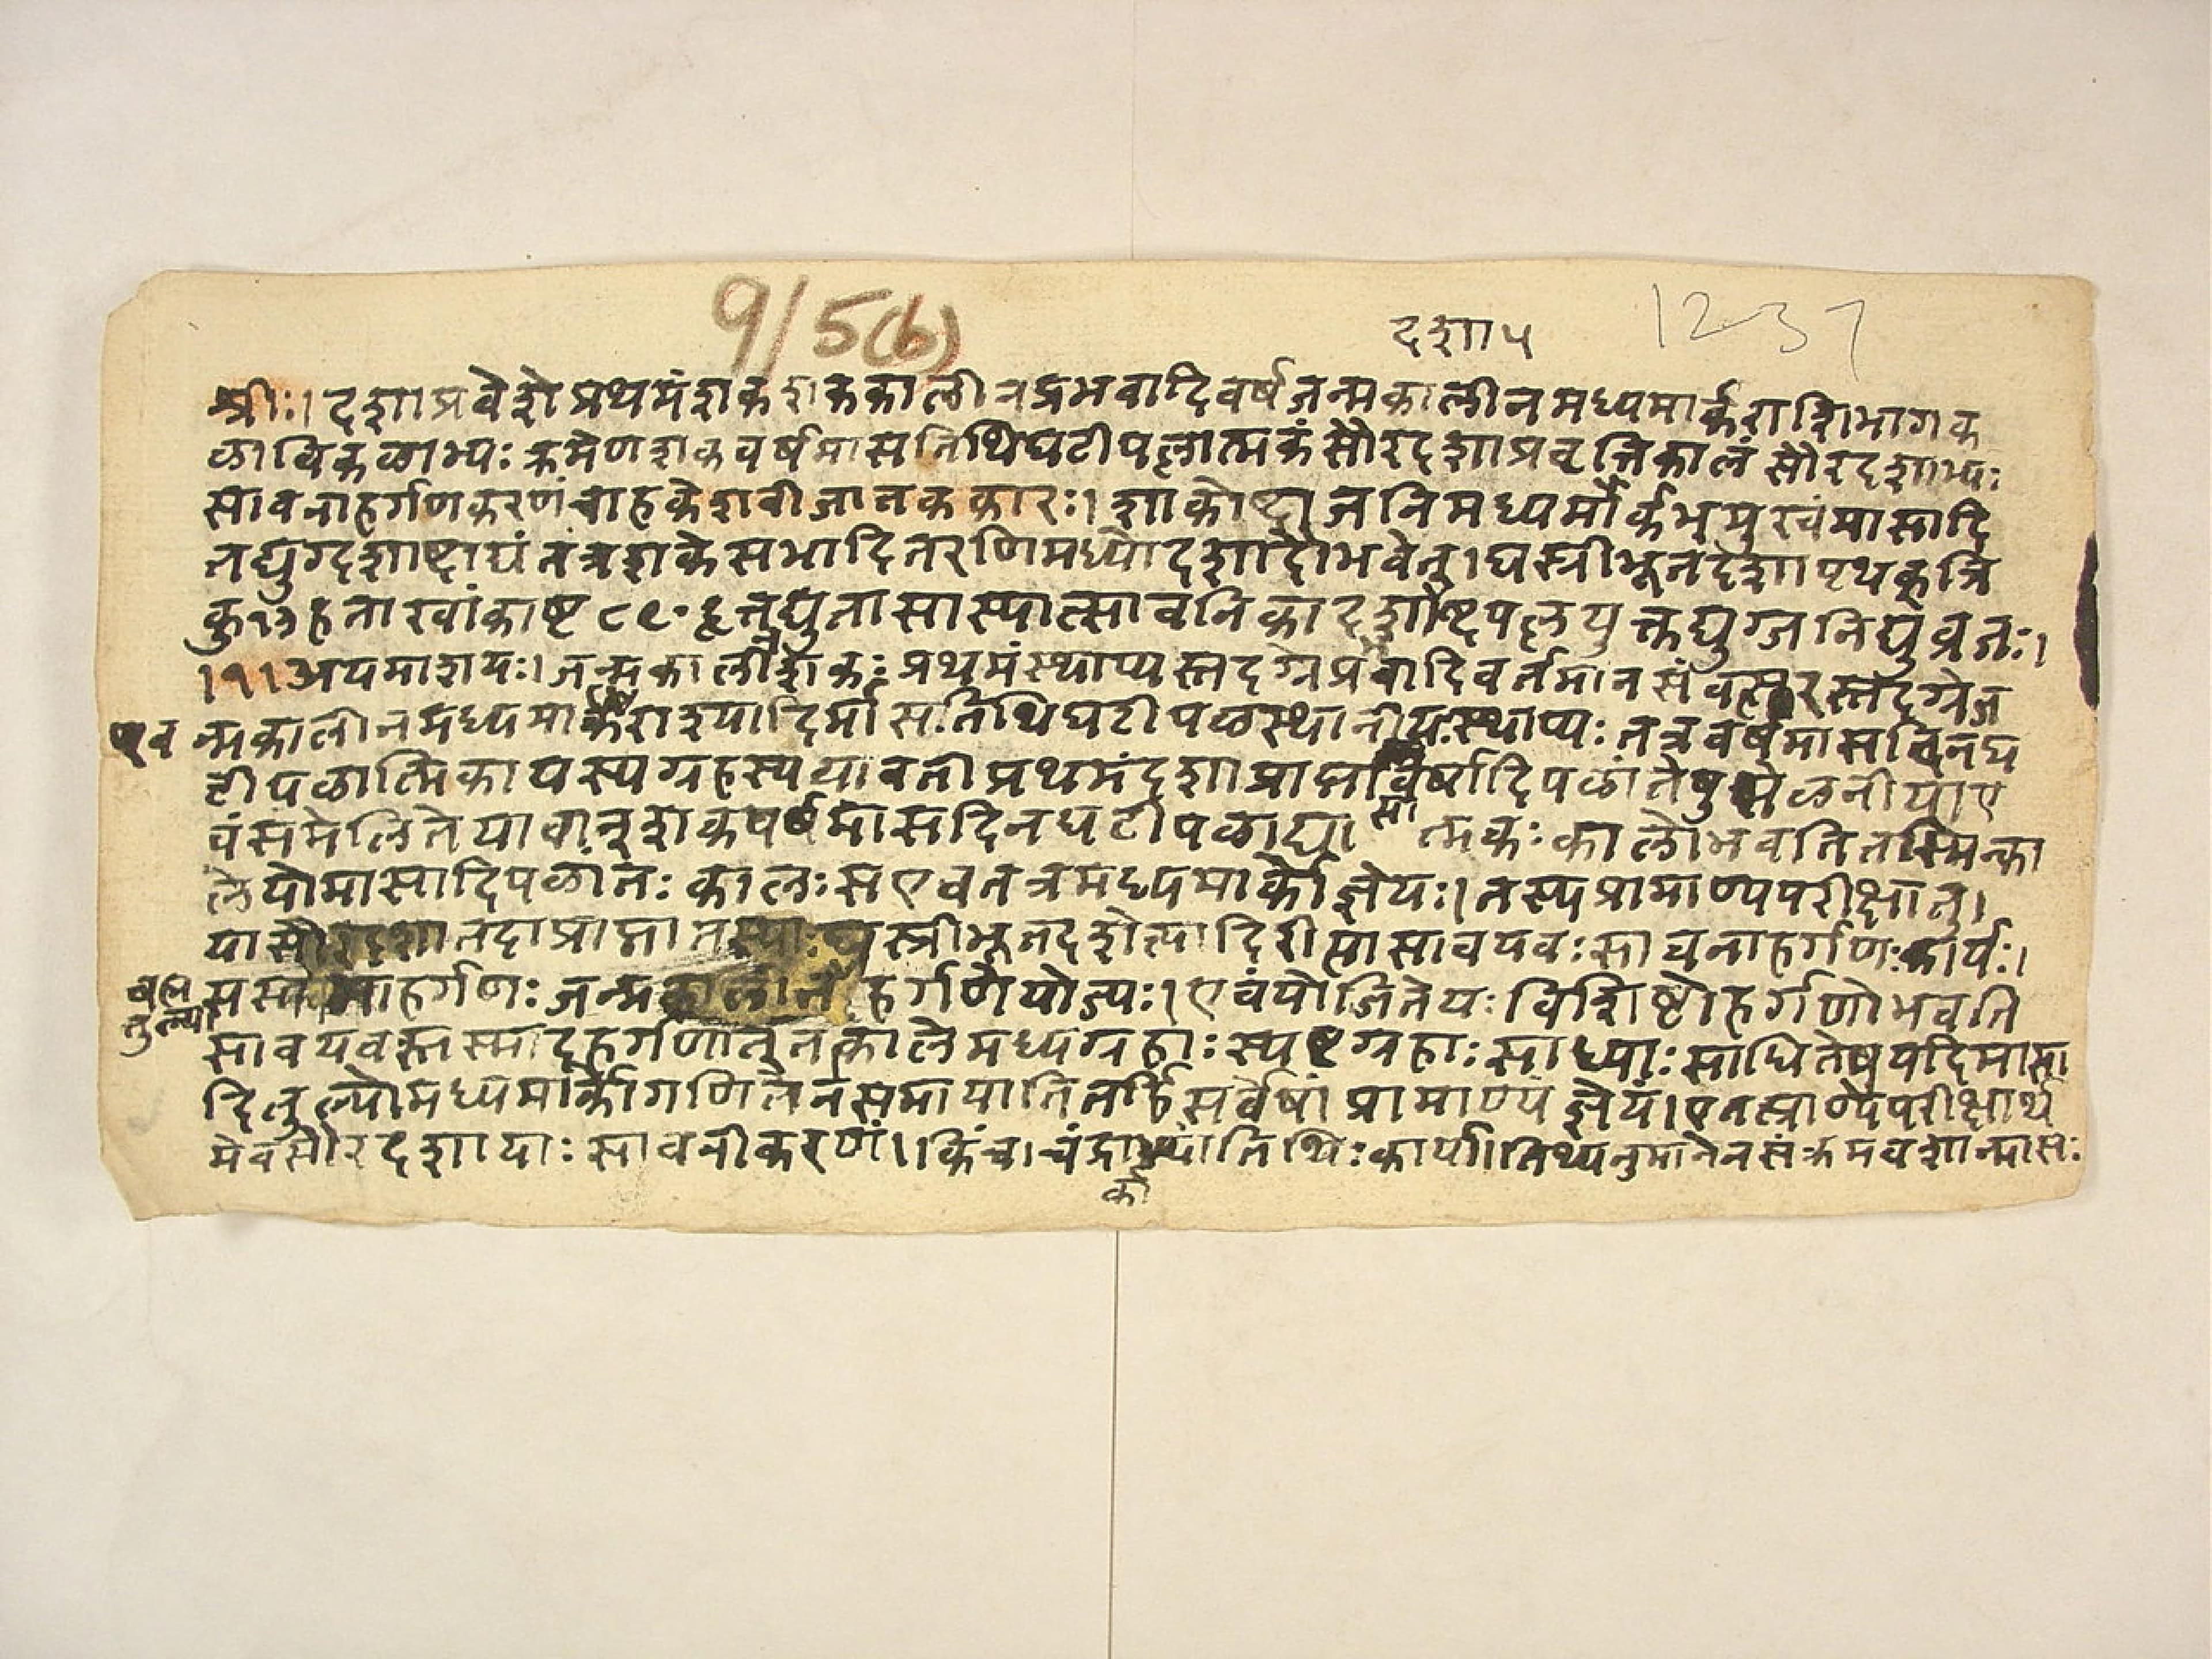 9/5(b)
दशा५
12-37
श्रीः। दशाप्रवेशे प्रथमंशकशककालीनप्रभवादिवर्षजन्मकालीनमध्यमार्कराशिभागक
ळाविकळाभ्यः क्रमेणशकवर्षमासतिथिघटीपलात्मकंसौरदशाप्रवृत्तिकालं सौरदशाभ्यः
सावनाहर्गणकरणंचाहकेशवीजातककारः। शाकोष्टा जनिमध्यमोर्कभमुखंमासादि
तद्युग्दशाष्टाद्यं तत्रशकेसभादितरणिर्मध्योदशादौभवेत्। घस्त्रीभूतदशापृथक्त्रि
कु१३हताखांकाष्ट८९०हृत्तद्युतासास्यात्सावनिकादशाष्टपलयुक्तद्युग्जनिद्युव्रजः।
।१।अयमाशयः। जन्मकालीनशकः प्रथमंस्थाप्यस्तदग्रेप्रभवादिवर्तमानसंवत्सरस्तदग्रेज
एव न्मकालीनमध्यमार्कराश्यादिर्मासतिथिघटीपळस्थानीयःस्थाप्यः तत्रवर्षमासदिनघ
टीपळात्मिकायस्यग्रहस्ययावतीप्रथमंदशाप्राप्तावर्षादिपळांतेषु मेळनीयाए
वंसंमेलितेयावान्शकवर्षमासदिनघटीपळाद्या त्मकः कालोभवतितस्मिन्का
सा
लेयोमासादिपळांतः कालः सएवतत्रमध्यमार्कोज्ञेयः। तस्यप्रामाण्यपरीक्षातु।
यासौरदशातदाप्राप्तातस्याः घस्त्रीभूतदशेत्यादिरीत्यासावयवः सावनाहर्गणः कार्यः।
तुल्या
हर्गणः जन्मकालीने हर्गणेयोज्यः। एवंयोजितेयः विशिष्टोहर्गणोभवति
सावयवस्तस्मादहर्गणात्तत्कालेमध्यग्रहाः स्पष्टग्रहाः साध्याः साधितेषुयदिमासा
दितुल्योमध्यमार्कोगणितेनसमायातितर्हिसर्वेषां प्रामाण्यं ज्ञेयं। एतत्प्राण्येपरीक्षार्थ
मेवसौरदशायाः सावनीकरणं। किंच। चंद्रा भ्यांतिथिः कार्या।तिथ्यनुमानेनसंक्रमवशान्मासः
र्का